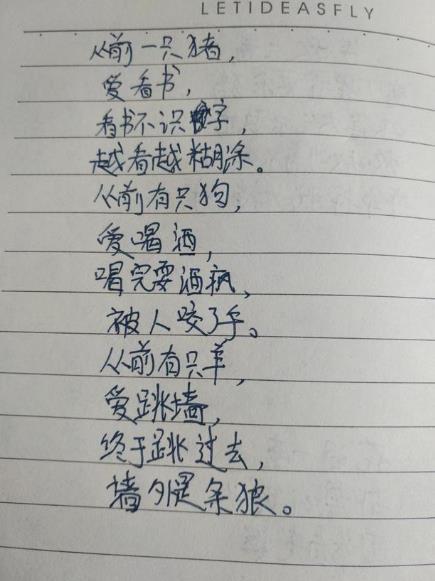 LETIDEASFLY
从前一只猪,
爱看书,
看书不识字,
越看越糊涂。
从前有只狗,
爱喝酒,
喝完耍酒疯,
被人咬了手。
从前有只羊,
爱跳墙,
终于跳过去,
墙外是条狼。